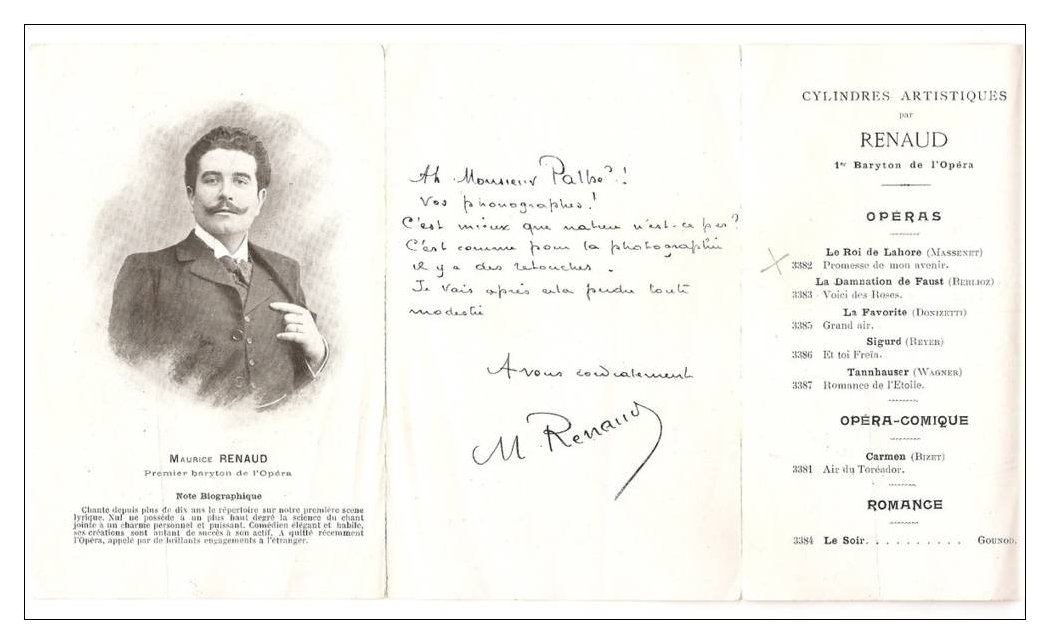 MAURICE RENAUD
Premier baryton de l'Opéra
Note Biographique
Chante depuis plus de dix ans le répertoire sur notre première scène
lyrique. Nul ne possède à un plus haut degré la science du chant
jointe à un charme personnel et puissant. Comédien élégant et habile,
ses créations sont autant de succès à son actif. A quitté récemment
l'Opéra, appelé par de brillants engagements à l'étranger.
Ah Monsieur Pathé !
Vos phonographes !
C'est mieux que nature n'est-ce pas ?
C'est comme pour la photographie
il y a des retouches .
Je vais après cela perdre toute
modestie
A vous cordialement
M. Renaud
CYLINDRES ARTISTIQUES
par
RENAUD
1er Baryton de l'Opéra
OPÉRAS
Le Roi de Lahore (MASSENET)
3382 Promesse de mon avenir.
La Damnation de Faust (BERLIOZ)
3383 Voici des Roses.
La Favorite (DONIZETTI)
3385 Grand air.
Sigurd (REYER)
3386 Et toi Freïa.
Tannhauser (WAGNER)
3387 Romance de l'Etoile.
OPÉRA-COMIQUE
Carmen (BIZET)
3381 Air du Toréador.
ROMANCE
3384 Le Soir. . . . . . . . . . GOUNOD.